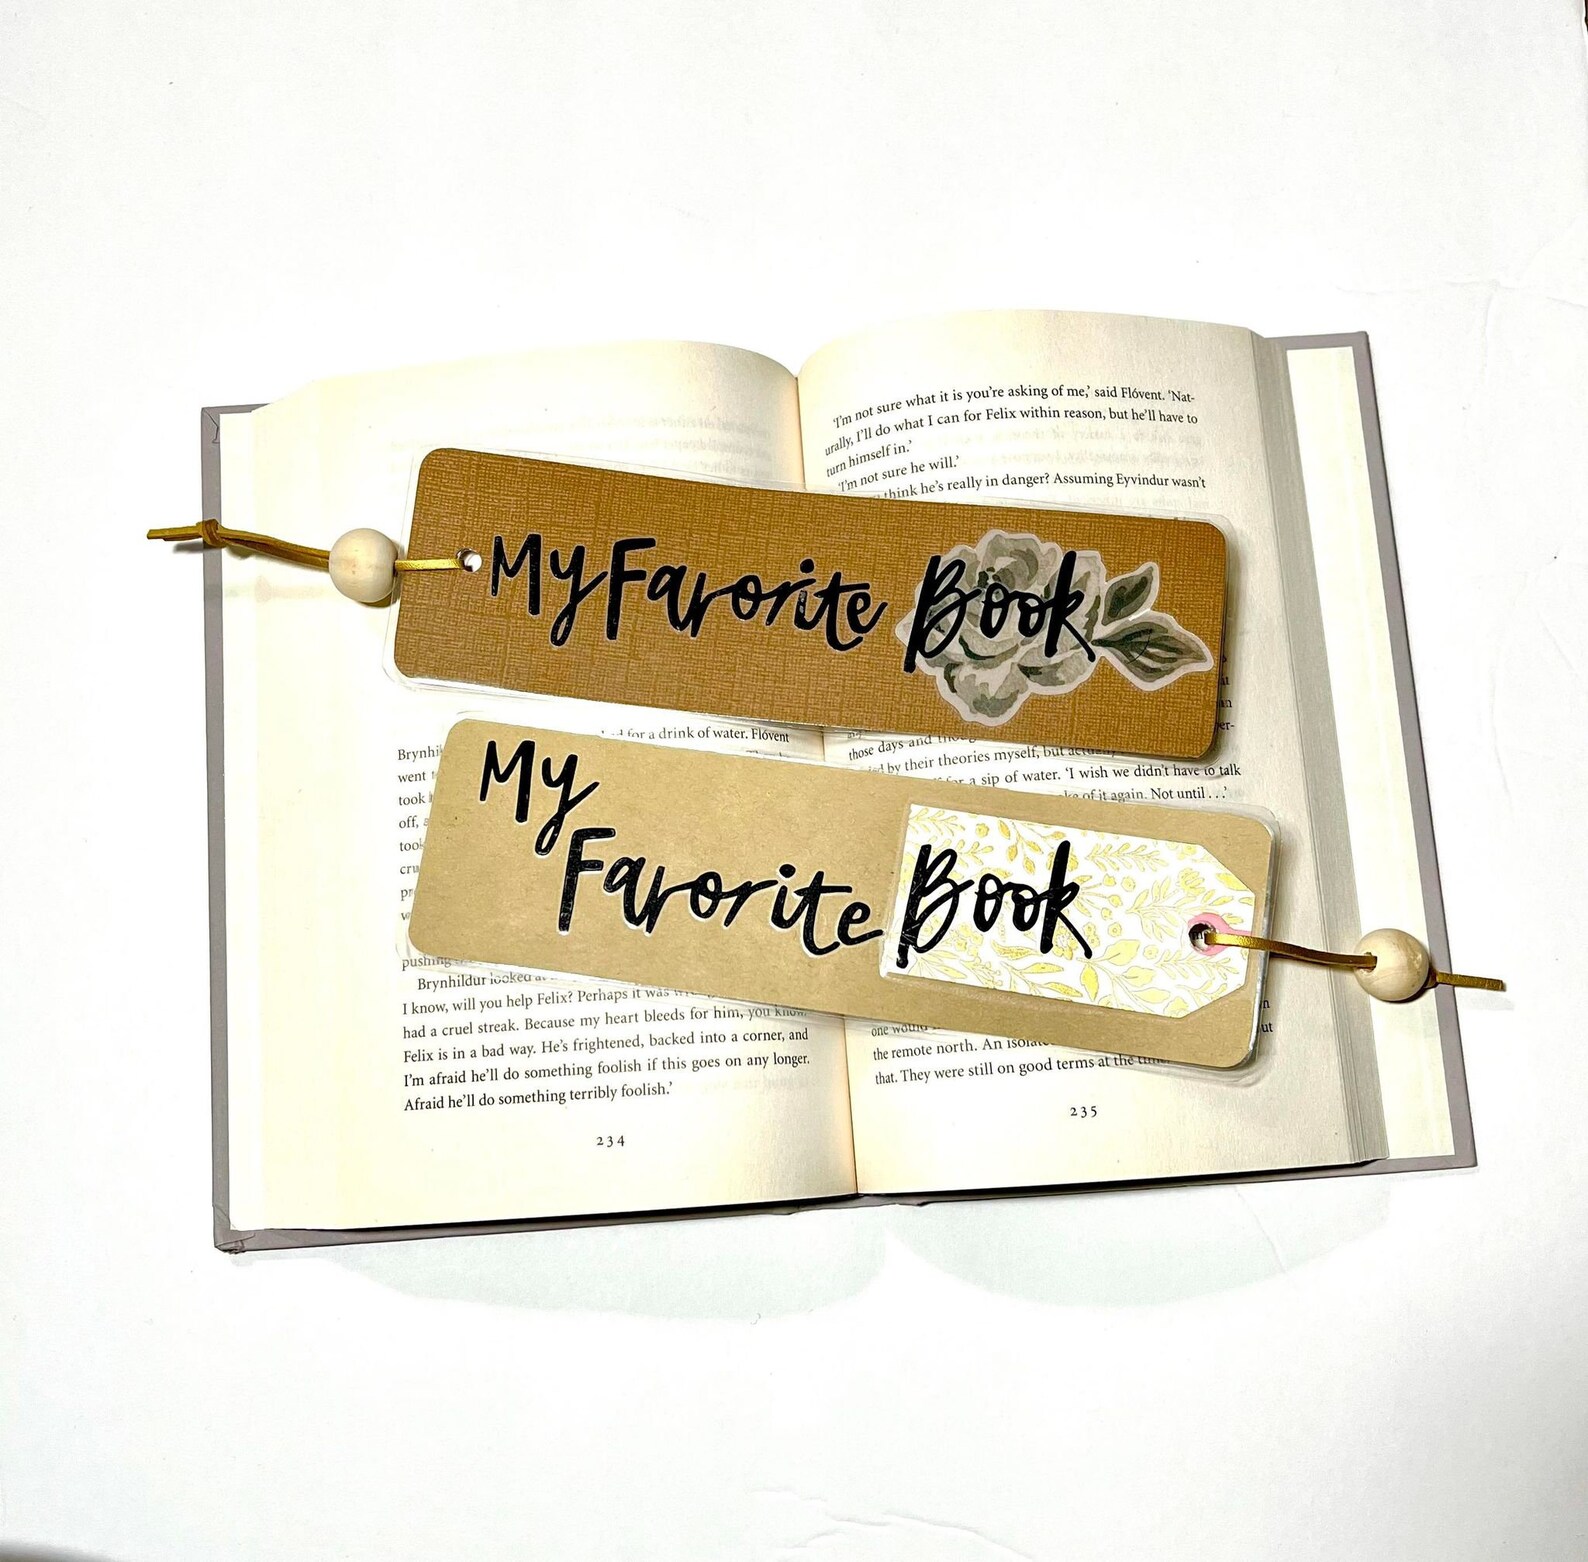 'I'm not sure what it is you're asking of me,' said Flóvent. 'Nat-
urally, I'll do what I can for Felix within reason, but he'll have to
turn himself in.'
'I'm not sure he will.'
think he's really in danger? Assuming Eyvindur wasn't
My Favorite Book
for a drink of water. Flóvent
went
took
off,
pushing
Brynhildur looked
I know, will you help Felix? Perhaps it was
had a cruel streak. Because my heart bleeds for him, you know.
Felix is in a bad way. He's frightened, backed into a corner, and
I'm afraid he'll do something foolish if this goes on any longer.
Afraid he'll do something terribly foolish.'
234
those days and
by their theories myself, but
a sip of water. 'I wish we didn't have to talk
of it again. Not until . . .'
My
Favorite Book
one would
the remote north. An
that. They were still on good terms at the
235